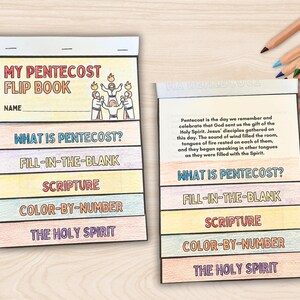 MY PENTECOST
FLIP BOOK
NAME
WHAT IS PENTECOST?
FILL-IN-THE-BLANK
SCRIPTURE
COLOR-BY-NUMBER
THE HOLY SPIRIT
Pentecost is the day we remember and
celebrate that God sent us the gift of the
Holy Spirit. Jesus' disciples gathered on
this day. The sound of wind filled the room,
tongues of fire rested on each of them,
and they began speaking in other tongues
as they were filled with the Spirit.
WHAT IS PENTECOST?
FILL-IN-THE-BLANK
SCRIPTURE
COLOR-BY-NUMBER
THE HOLY SPIRIT